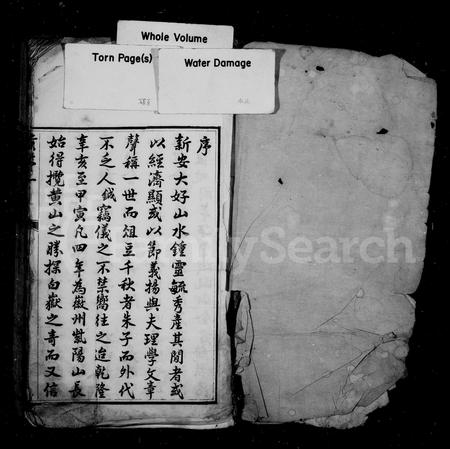 Whole Volume
Torn Page(s)
Water Damage
序
新安大好山水鍾靈毓秀產其閒者或
以經濟顯或以節義揚與夫理學文章
聲稱一世而俎豆千秋者朱子而外代
不乏人鉞竊儀之不禁嚮往之迨乾隆
辛亥至甲寅凡四年為徽州紫陽山長
始得攬黃山之勝探白嶽之奇而又信
FamilySearch